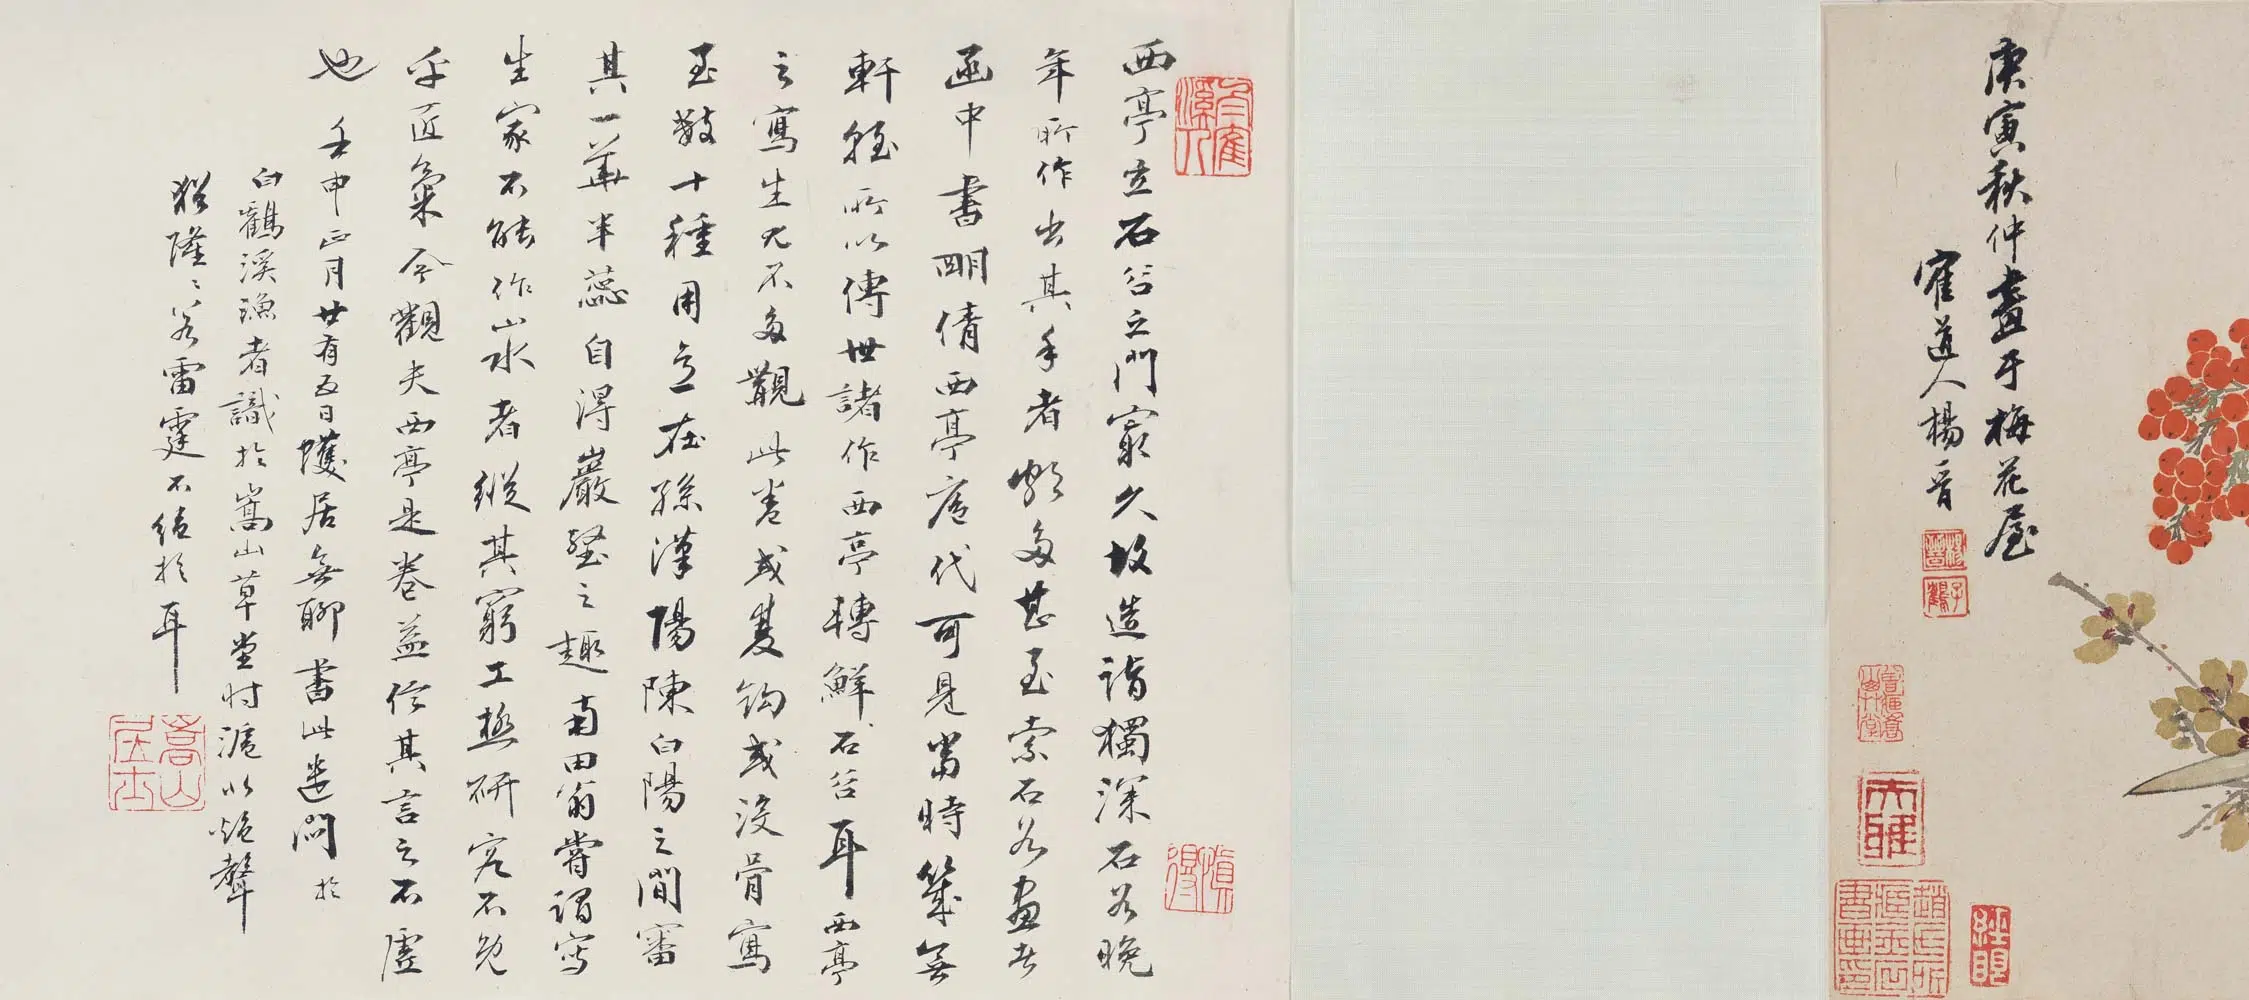 庚寅秋仲畫于梅花屋
隺道人楊晉
西亭立石谷之門寂久故造詣獨深石谷晚
年所作出其手者頗多甚至索石谷畫者
函中書明倩西亭庖代可見當時幾無
軒輊所以傳世諸作西亭轉鮮石谷耳西亭
之寫生尤不多觀此卷或雙鈎或沒骨寫
至數十種用意在孫漢陽陳白陽之間審
其一華半蕊自得巖壑之趣南田翁嘗謂寫
生家不能作山水者縱其窮工極研究不免
乎匠氣今觀夫西亭是卷益信其言之不虛
也 壬申正月廿有五日蠖居無聊書此遣悶於
白鶴溪漁者識於嵩山草堂時滬以炮聲
猶隆隆若雷霆不絕於耳
楊晉
子鶴
大雅
嵩山居士
慎得